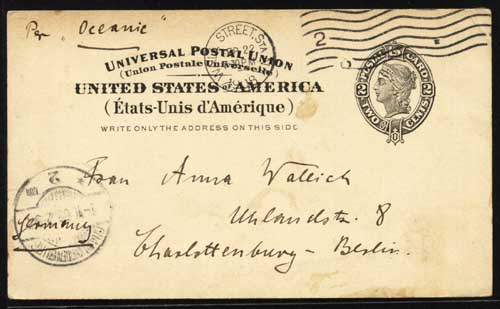 Per "Oceanic"
STREET, STA.
2
UNIVERSAL POSTAL UNION
(Union Postale Universelle)
UNITED STATES OF AMERICA
(États-Unis d'Amérique)
WRITE ONLY THE ADDRESS ON THIS SIDE
POSTAL CARD
2 2
TWO CENTS.
Frau Anna Wallich
Uhlandstr. 8
Charlottenburg - Berlin.
Germany
2